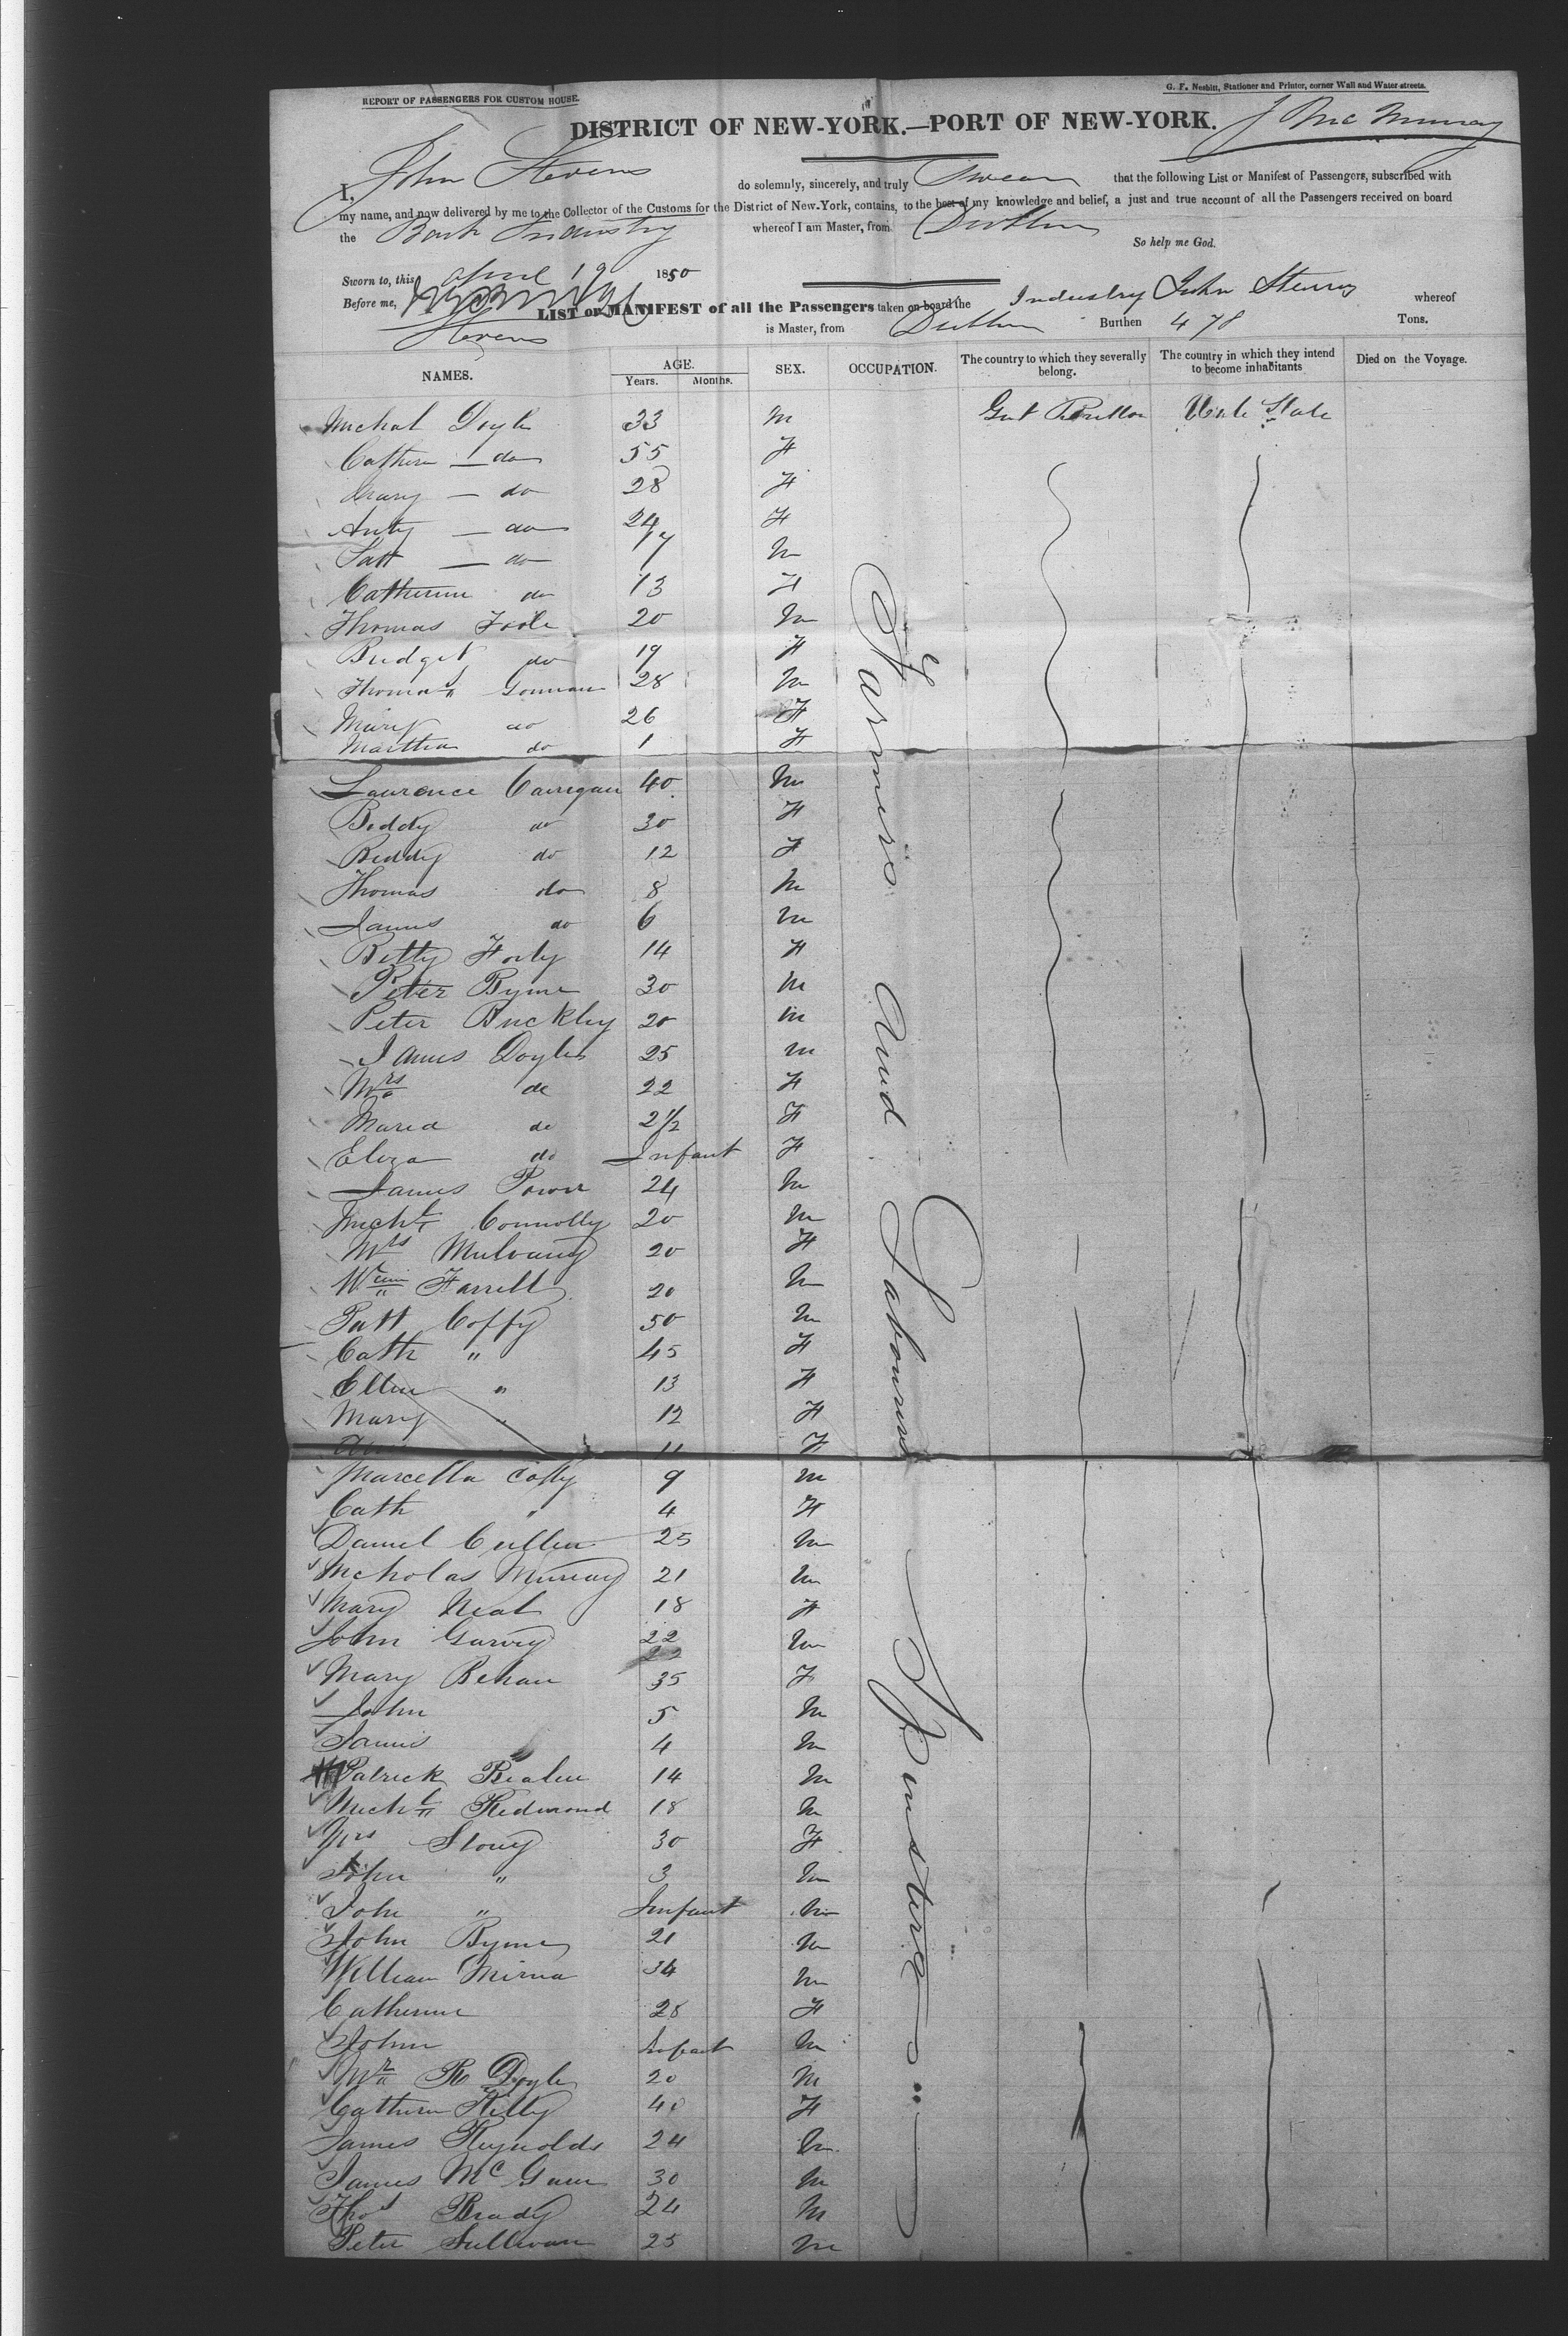 REPORT OF PASSENGERS FOR CUSTOM HOUSE.
G. F. Nesbitt, Stationer and Printer, corner Wall and Water streets.
DISTRICT OF NEW-YORK.—PORT OF NEW-YORK.
J McMurray
I, John Stevens do solemnly, sincerely, and truly Swear that the following List or Manifest of Passengers, subscribed with
my name, and now delivered by me to the Collector of the Customs for the District of New-York, contains, to the best of my knowledge and belief, a just and true account of all the Passengers received on board
the Bark Industry whereof I am Master, from Dublin
So help me God.
Sworn to, this April 19 1850
Before me,
LIST OR MANIFEST of all the Passengers taken on board the Industry John Stevens whereof
Stevens is Master, from Dublin Burthen 478 Tons.
NAMES. AGE. SEX. OCCUPATION. The country to which they severally belong. The country in which they intend to become inhabitants Died on the Voyage.
Years. Months.
Michal Doyle 33 M
Cathern do 55 F
Mary do 28 F
Anty do 24 F
Patt do 17 M
Catherine do 13 F
Thomas Toole 20 M
Bridget do 19 F
Thomas Gorman 28 M
Mary do 26 F
Martha do 1 F
Laurence Carregan 40 M
Biddy do 30 F
Biddy do 12 F
Thomas do 8 M
James do 6 M
Betty Forly 14 F
Peter Byrne 30 M
Peter Buckley 20 M
James Doyle 25 M
Mrs do 22 F
Maria do 2½ F
Eliza do Infant F
James Power 24 M
Michl Connolly 20 M
Mrs Mulvany 20 F
Wm Farrell 20 M
Patt Coffy 50 M
Cath " 45 F
Ellen " 13 F
Mary " 12 F
11 F
Marcella Coffy 9 M
Cath " 4 F
Daniel Cullen 25 M
Nicholas Murray 21 M
Mary Neal 18 F
John Garvey 22 M
22
Mary Behan 35 F
John 5 M
James 4 M
Patrick 14 M
Michl Redmond 18 M
Mrs Story 30 F
John " 3 M
John " Infant M
John Byrne 21 M
William Mirna 34 M
Catherine 28 F
John Infant M
Mr R Doyle 20 M
Cathern Kelly 40 F
James Reynolds 24 M
James McGann 30 M
Thos Brady 24 M
Peter Sullivan 25 M
Farmers And Labourers
Spinsters